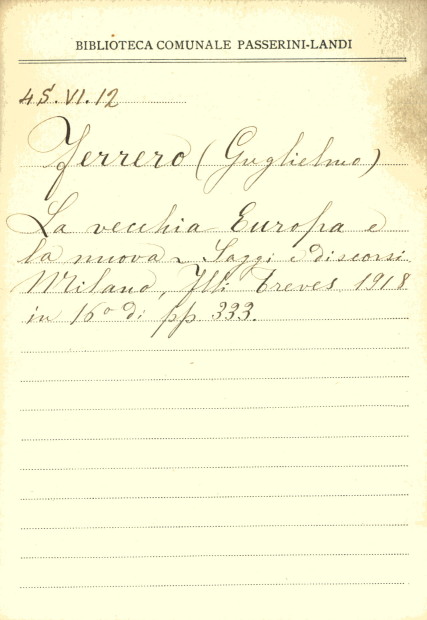 BIBLIOTECA COMUNALE PASSERINI-LANDI
4S.VI.12
Ferrero (Guglielmo)
La vecchia Europa e
la nuova - Saggi e discorsi
Milano, Flli Treves 1918
in 16° di pp 333.